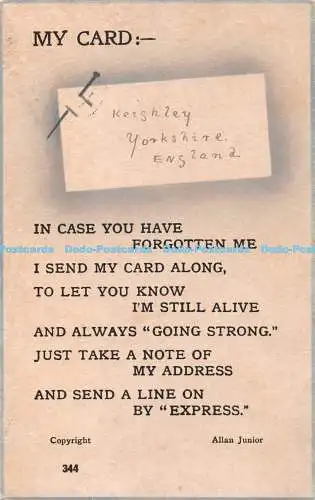 MY CARD:—
Keighley
Yorkshire.
England
IN CASE YOU HAVE
FORGOTTEN ME
Postcards Dodo-Postcards Dodo-Postcards Dodo-Postcards Dodo
I SEND MY CARD ALONG,
TO LET YOU KNOW
I'M STILL ALIVE
AND ALWAYS “GOING STRONG.”
JUST TAKE A NOTE OF
MY ADDRESS
AND SEND A LINE ON
BY “EXPRESS.”
Copyright Allan Junior
344